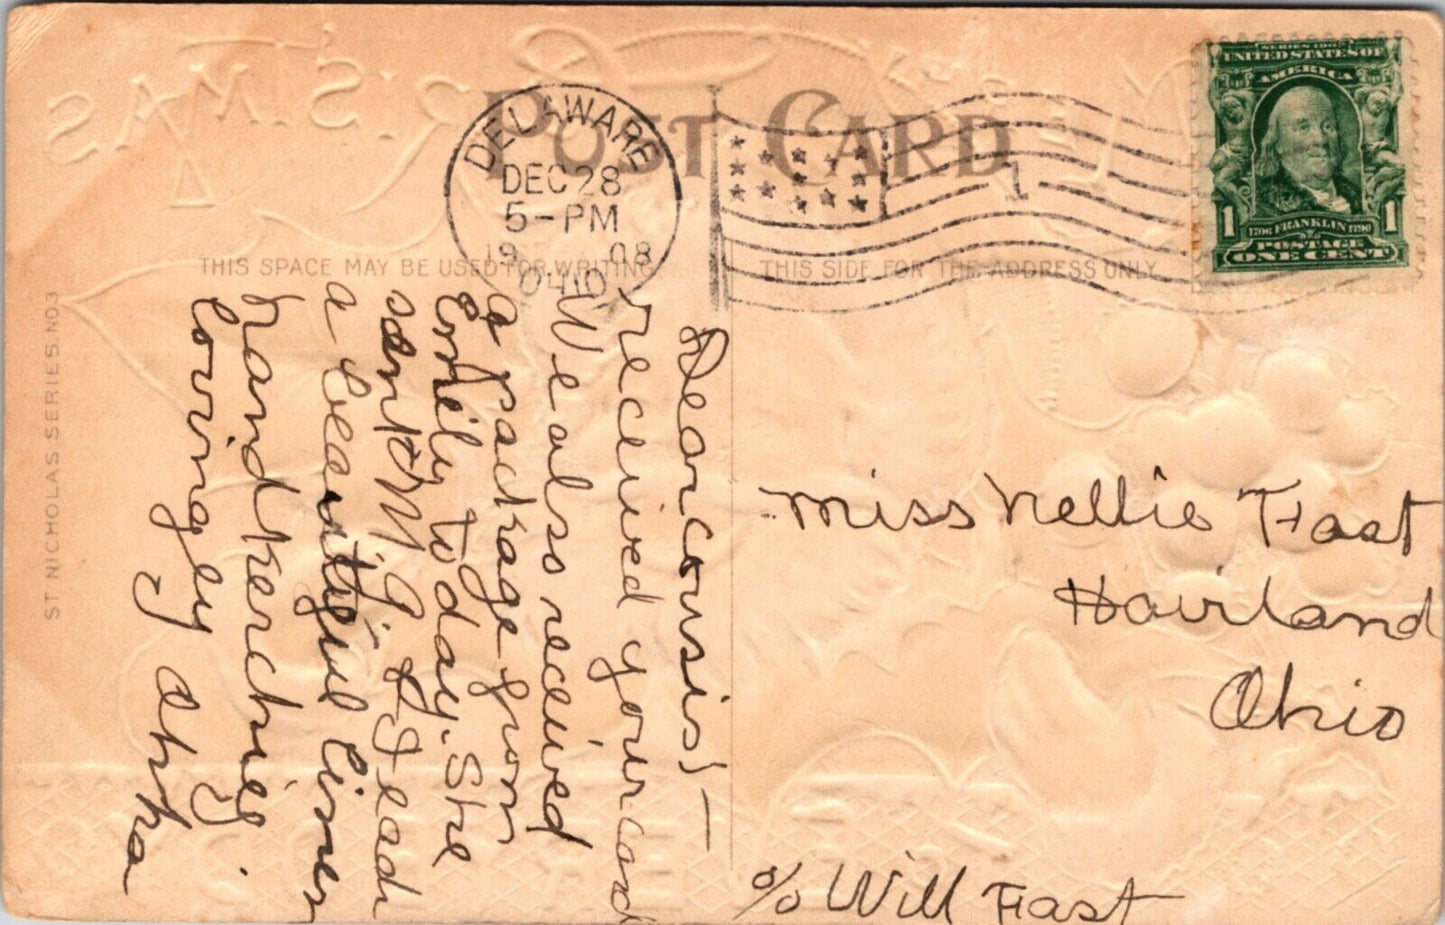 POST CARD
DELAWARE
DEC 28
5-PM
1908
OHIO
1
SERIES 1902
UNITED STATES OF
AMERICA
1 1
1706 FRANKLIN 1790
POSTAGE
ONE CENT
THIS SPACE MAY BE USED FOR WRITING
THIS SIDE FOR THE ADDRESS ONLY
ST NICHOLAS SERIES. NO 3
Dear cousin —
received your card
We also received
a package from
Emily today. She
sent M. G. & I each
a beautiful linen
handkerchief
lovingly
Miss Nellie Fast
Ohio
c/o Will Fast